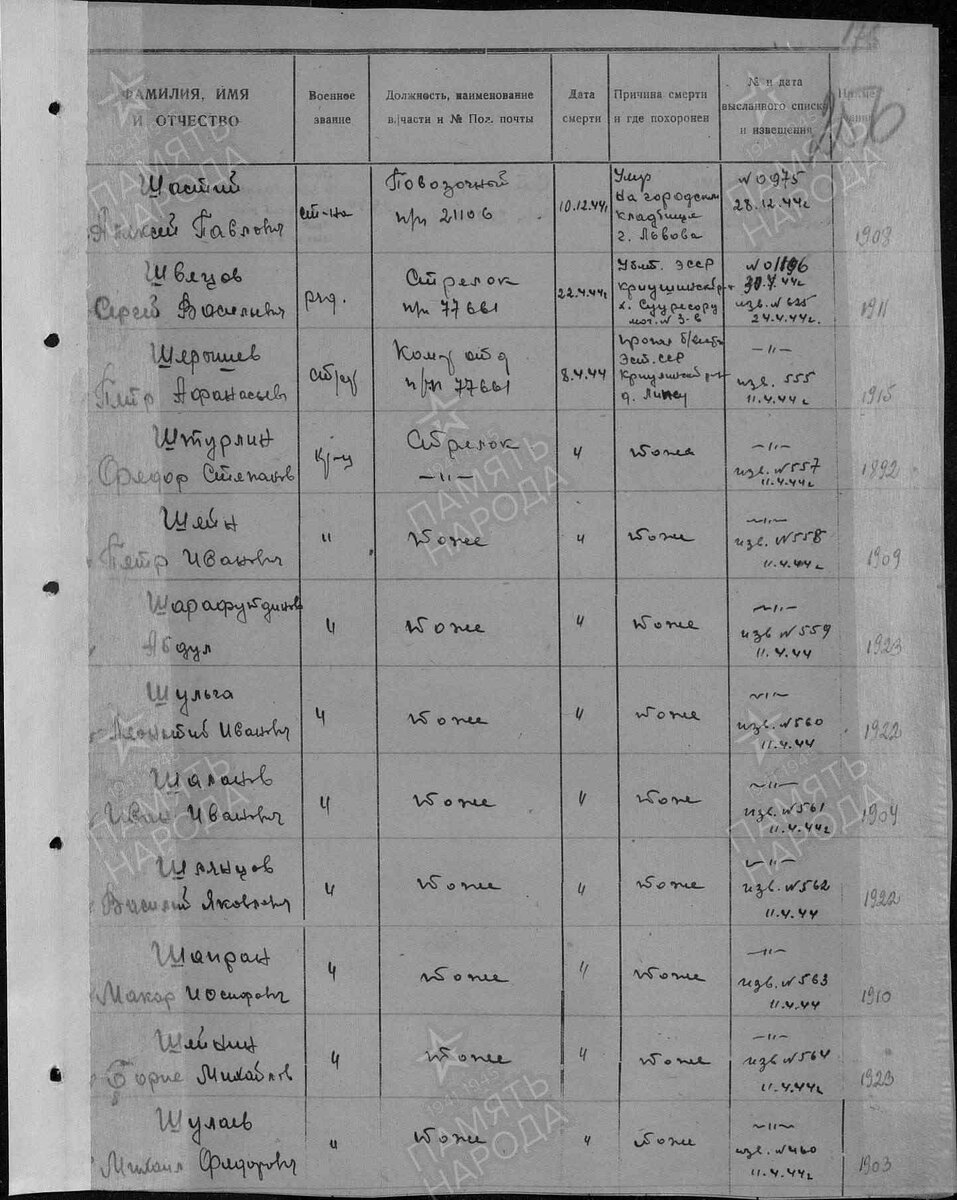 175
206
ФАМИЛИЯ, ИМЯ И ОТЧЕСТВО
Военное звание
Должность, наименование в/части и № Пол. почты
Дата смерти
Причина смерти и где похоронен
№ и дата высланного списка и извещения
Шастий
Алексей Павлович
ст-на
Повозочный
п/п 21106
10.12.44г
Умер
на городском
кладбище
г. Львова
№ 0975
28.12.44г
1908
Швецов
Сергей Василевич
ряд.
Стрелок
п/п 77661
22.4.44г
Убит. ЭССР
х. Сууресору
мог. № 3-8
№ 01196
30.4.44г
изв. № 625
24.4.44г.
1911
Шерышев
Петр Афанасьев
Ком/ отд
п/п 77661
8.4.44
Эст. ССР
—"—
изв. 555
11.4.44г
1915
Штурлин
Федор Степанов
кр-ц
Стрелок
—"—
"
тоже
—"—
изв. №557
11.4.44г
1892
Шейн
Петр Иванович
"
тоже
"
тоже
—"—
изв. №558
11.4.44г
1909
Шарафутдинов
Абдул
"
тоже
"
тоже
—"—
изв №559
11.4.44
1923
Шульга
Леонтий Иванович
"
тоже
"
тоже
—"—
изв. №560
11.4.44
1922
Шаланов
Иван Иванович
"
тоже
"
тоже
—"—
изв. №561
11.4.44г
1904
Шалнцов
Василий Яковлевич
"
тоже
"
тоже
—"—
изв. №562
11.4.44
1922
Шапран
Макар Иосифович
"
тоже
"
тоже
—"—
изв. №563
11.4.44
1910
Шейкин
Борис Михайлов
"
тоже
"
тоже
—"—
изв №564
11.4.44г
1923
Шулаев
Михаил Федорович
"
тоже
"
тоже
—"—
изв. №460
11.4.44г
1903
ПАМЯТЬ
НАРОДА
1941-1945